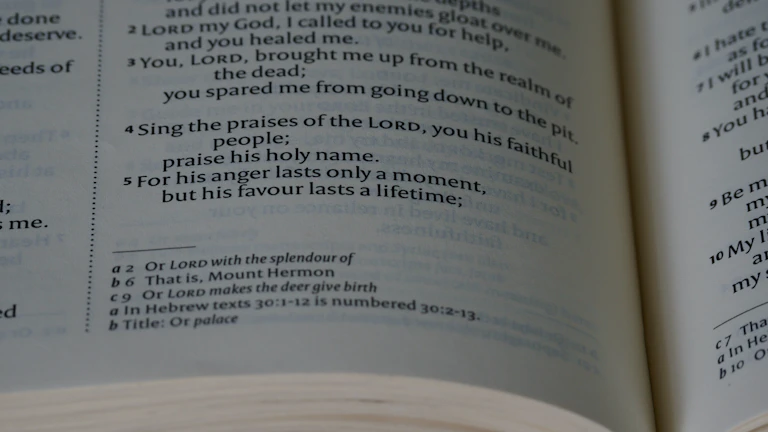 done
deserve.
eeds of
s me.
ed
depths
and did not let my enemies gloat over me.
2 LORD my God, I called to you for help,
and you healed me.
3 You, LORD, brought me up from the realm of
the dead;
you spared me from going down to the pit.
4 Sing the praises of the LORD, you his faithful
people;
praise his holy name.
5 For his anger lasts only a moment,
but his favour lasts a lifetime;
a 2 Or LORD with the splendour of
b 6 That is, Mount Hermon
c 9 Or LORD makes the deer give birth
a In Hebrew texts 30:1-12 is numbered 30:2-13.
b Title: Or palace
6 I hate t
as fo
7 I will b
for y
and
8 You ha
but
9 Be m
my
m
10 My li
a
my s
c 7 Tha
a In He
b 10 O